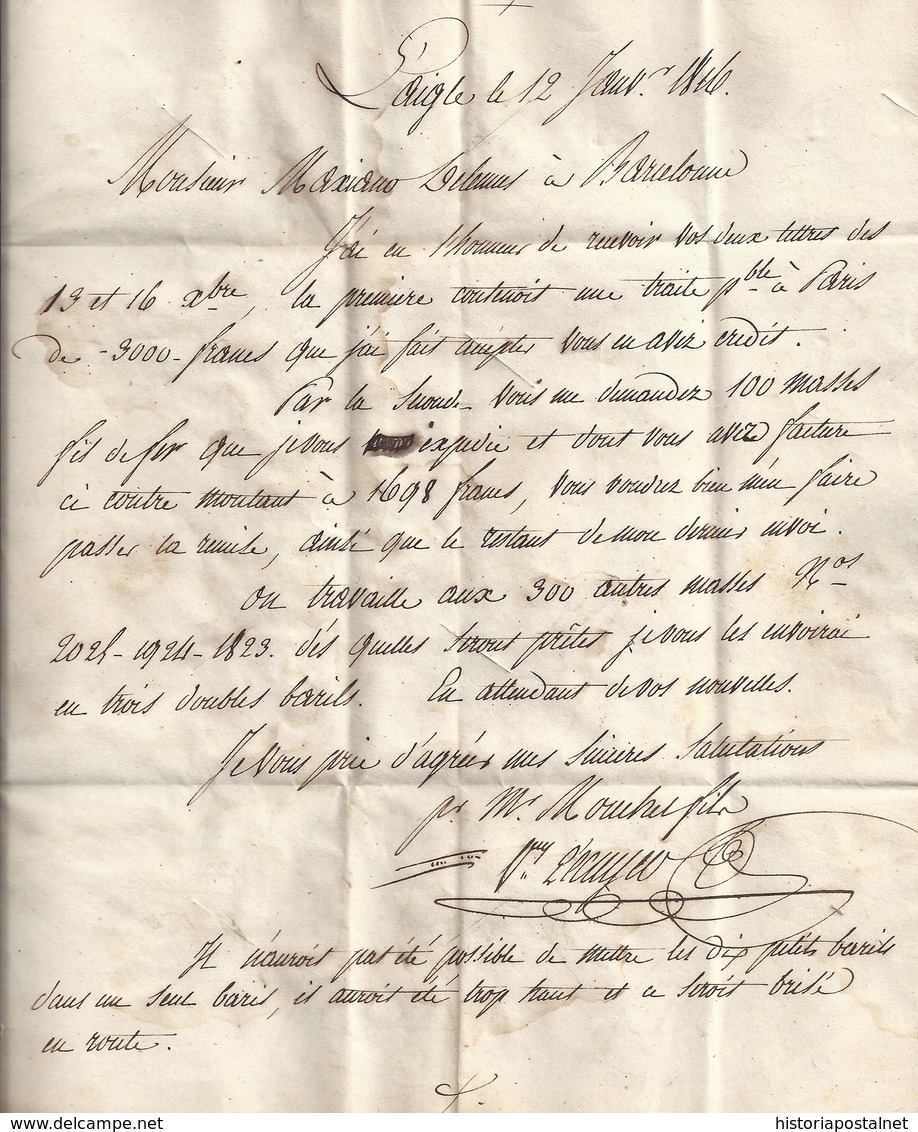 L'aigle le 12 Janv.r 1816.
Monsieur Mariano à Barcelonne
J'ai eu l'honneur de recevoir vos deux lettres des
13 et 16 xbre, la premiere contenoit une traite pble à Paris
de -3000- francs que j'ai fait accepter vous en avez credit.
Par la seconde vous me demandez 100 masses
fil de fer que je vous expedie et dont vous avez facture
ci contre montant à 1698 francs, vous voudrez bien m'en faire
passer la remise, ainsi que le restant de mon dernier envoi.
On travaille aux 300 autres masses Nos
2025-1924-1823. dés quelles seront prêtes je vous les envoirai
en trois doubles barils. En attendant de vos nouvelles.
Je vous prie d'agréer mes sinceres salutations
pr Mr Mouchel fils
Il n'auroit pas été possible de mettre les dix petits barils
dans un seul baril, il auroit été trop haut et ce seroit brisé
en route.
historiapostalnet
www.delcampe.net